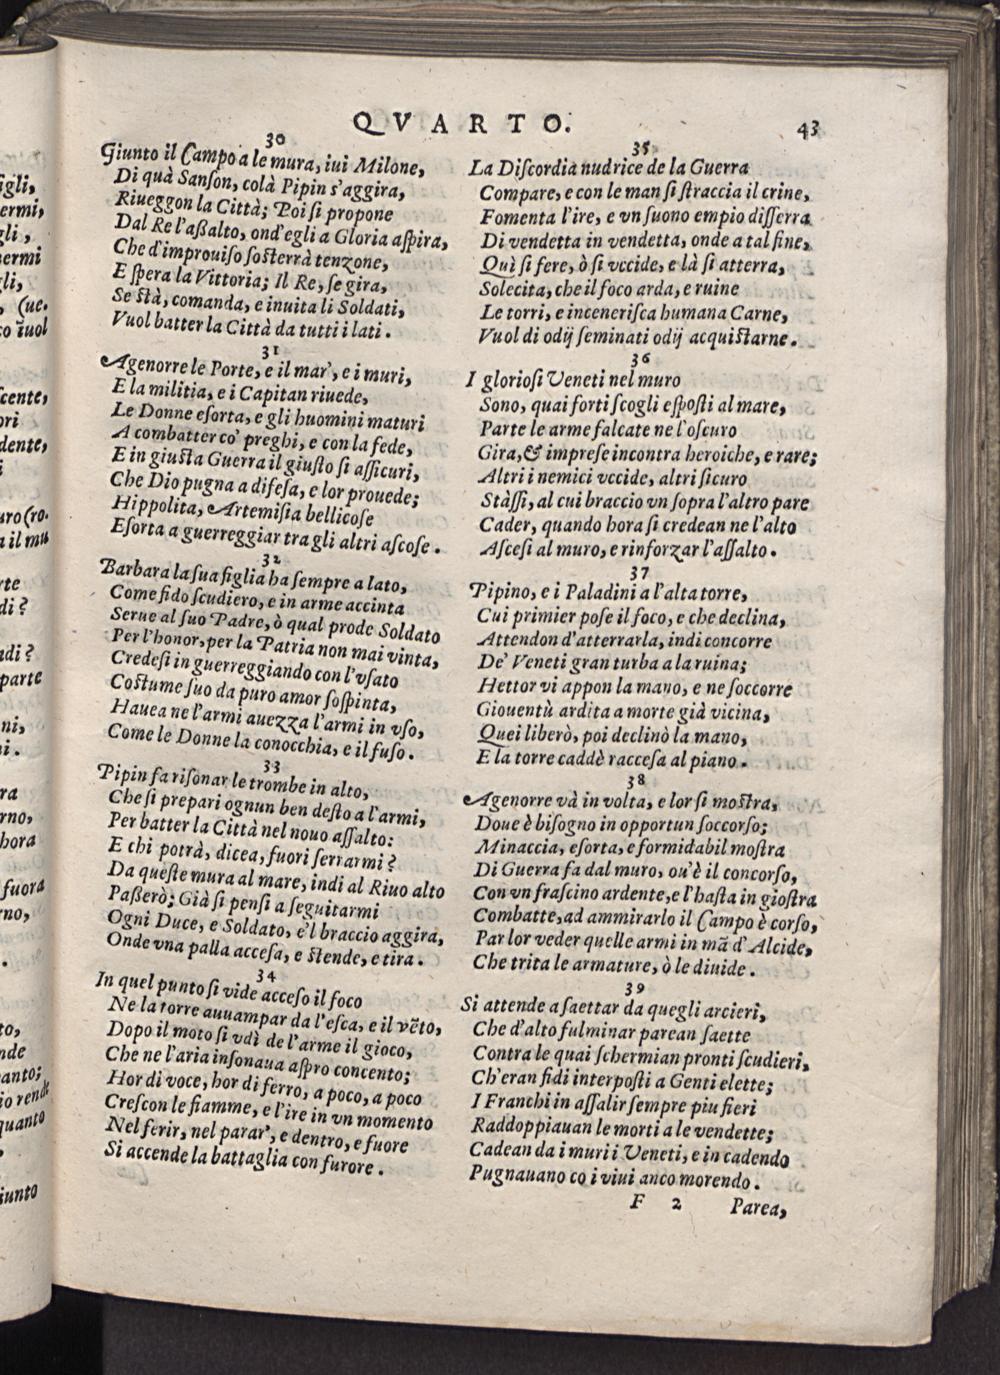 QVARTO.
43
30
Giunto il Campo a le mura, iui Milone,
Di quà Sanſon, colà Pipin s'aggira,
Riueggon la Città; Poi ſi propone
Dal Re l'aßalto, ond'egli a Gloria aſpira,
Che d'improuiſo ſoſterrà tenzone,
E ſpera la Vittoria; Il Re, ſe gira,
Se ſtà, comanda, e inuita li Soldati,
Vuol batter la Città da tutti i lati.
31
Agenorre le Porte, e il mar', e i muri,
E la militia, e i Capitan riuede,
Le Donne eſorta, e gli huomini maturi
A combatter co' preghi, e con la fede,
E in giuſta Guerra il giuſto ſi aſſicuri,
Che Dio pugna a difeſa, e lor prouede;
Hippolita, e Artemiſia bellicoſe
Eſorta a guerreggiar tra gli altri aſcoſe.
32
Barbara la ſua figlia ha ſempre a lato,
Come fido ſcudiero, e in arme accinta
Serue al ſuo Padre, ò qual prode Soldato
Per l'honor, per la Patria non mai vinta,
Credeſi in guerreggiando con l'vſato
Coſtume ſuo da puro amor ſoſpinta,
Hauea ne l'armi auezza l'armi in vſo,
Come le Donne la conocchia, e il fuſo.
33
Pipin fa riſonar le trombe in alto,
Che ſi prepari ognun ben deſto a l'armi,
Per batter la Città nel nouo aſſalto:
E chi potrà, dicea, fuori ſerrarmi?
Da queſte mura al mare, indi al Riuo alto
Paßerò; Già ſi penſi a ſeguitarmi
Ogni Duce, e Soldato, e'l braccio aggira,
Onde vna palla acceſa, e ſtende, e tira.
34
In quel punto ſi vide acceſo il foco
Ne la torre auuampar da l'eſca, e il vẽto,
Dopo il moto ſi vdì de l'arme il gioco,
Che ne l'aria inſonaua aſpro concento;
Hor di voce, hor di ferro, a poco, a poco
Creſcon le fiamme, e l'ire in vn momento
Nel ferir, nel parar', e dentro, e fuore
Si accende la battaglia con furore.
35
La Diſcordia nudrice de la Guerra
Compare, e con le man ſi ſtraccia il crine,
Fomenta l'ire, e vn ſuono empio diſſerra
Di vendetta in vendetta, onde a tal fine,
Quì ſi fere, ò ſi vccide, e là ſi atterra,
Solecita, che il foco arda, e ruine
Le torri, e inceneriſca humana Carne,
Vuol di odij ſeminati odij acquiſtarne.
36
I glorioſi Veneti nel muro
Sono, quai forti ſcogli eſpoſti al mare,
Parte le arme falcate ne l'oſcuro
Gira, & impreſe incontra heroiche, e rare;
Altri i nemici vccide, altri ſicuro
Stàſſi, al cui braccio vn ſopra l'altro pare
Cader, quando hora ſi credean ne l'alto
Aſceſi al muro, e rinforzar l'aſſalto.
37
Pipino, e i Paladini a l'alta torre,
Cui primier poſe il foco, e che declina,
Attendon d'atterrarla, indi concorre
De' Veneti gran turba a la ruina;
Hettor vi appon la mano, e ne ſoccorre
Giouentù ardita a morte già vicina,
Quei liberò, poi declinò la mano,
E la torre caddè racceſa al piano.
38
Agenorre và in volta, e lor ſi moſtra,
Doue è biſogno in opportun ſoccorſo;
Minaccia, eſorta, e formidabil moſtra
Di Guerra fa dal muro, ou'è il concorſo,
Con vn fraſcino ardente, e l'haſta in gioſtra
Combatte, ad ammirarlo il Campo è corſo,
Par lor veder quelle armi in mã d'Alcide,
Che trita le armature, ò le diuide.
39
Si attende a ſaettar da quegli arcieri,
Che d'alto fulminar parean ſaette
Contra le quai ſchermian pronti ſcudieri,
Ch'eran fidi interpoſti a Genti elette;
I Franchi in aſſalir ſempre piu fieri
Raddoppiauan le morti a le vendette;
Cadean da i muri i Veneti, e in cadendo
Pugnauano co i viui anco morendo.
F 2 Parea,